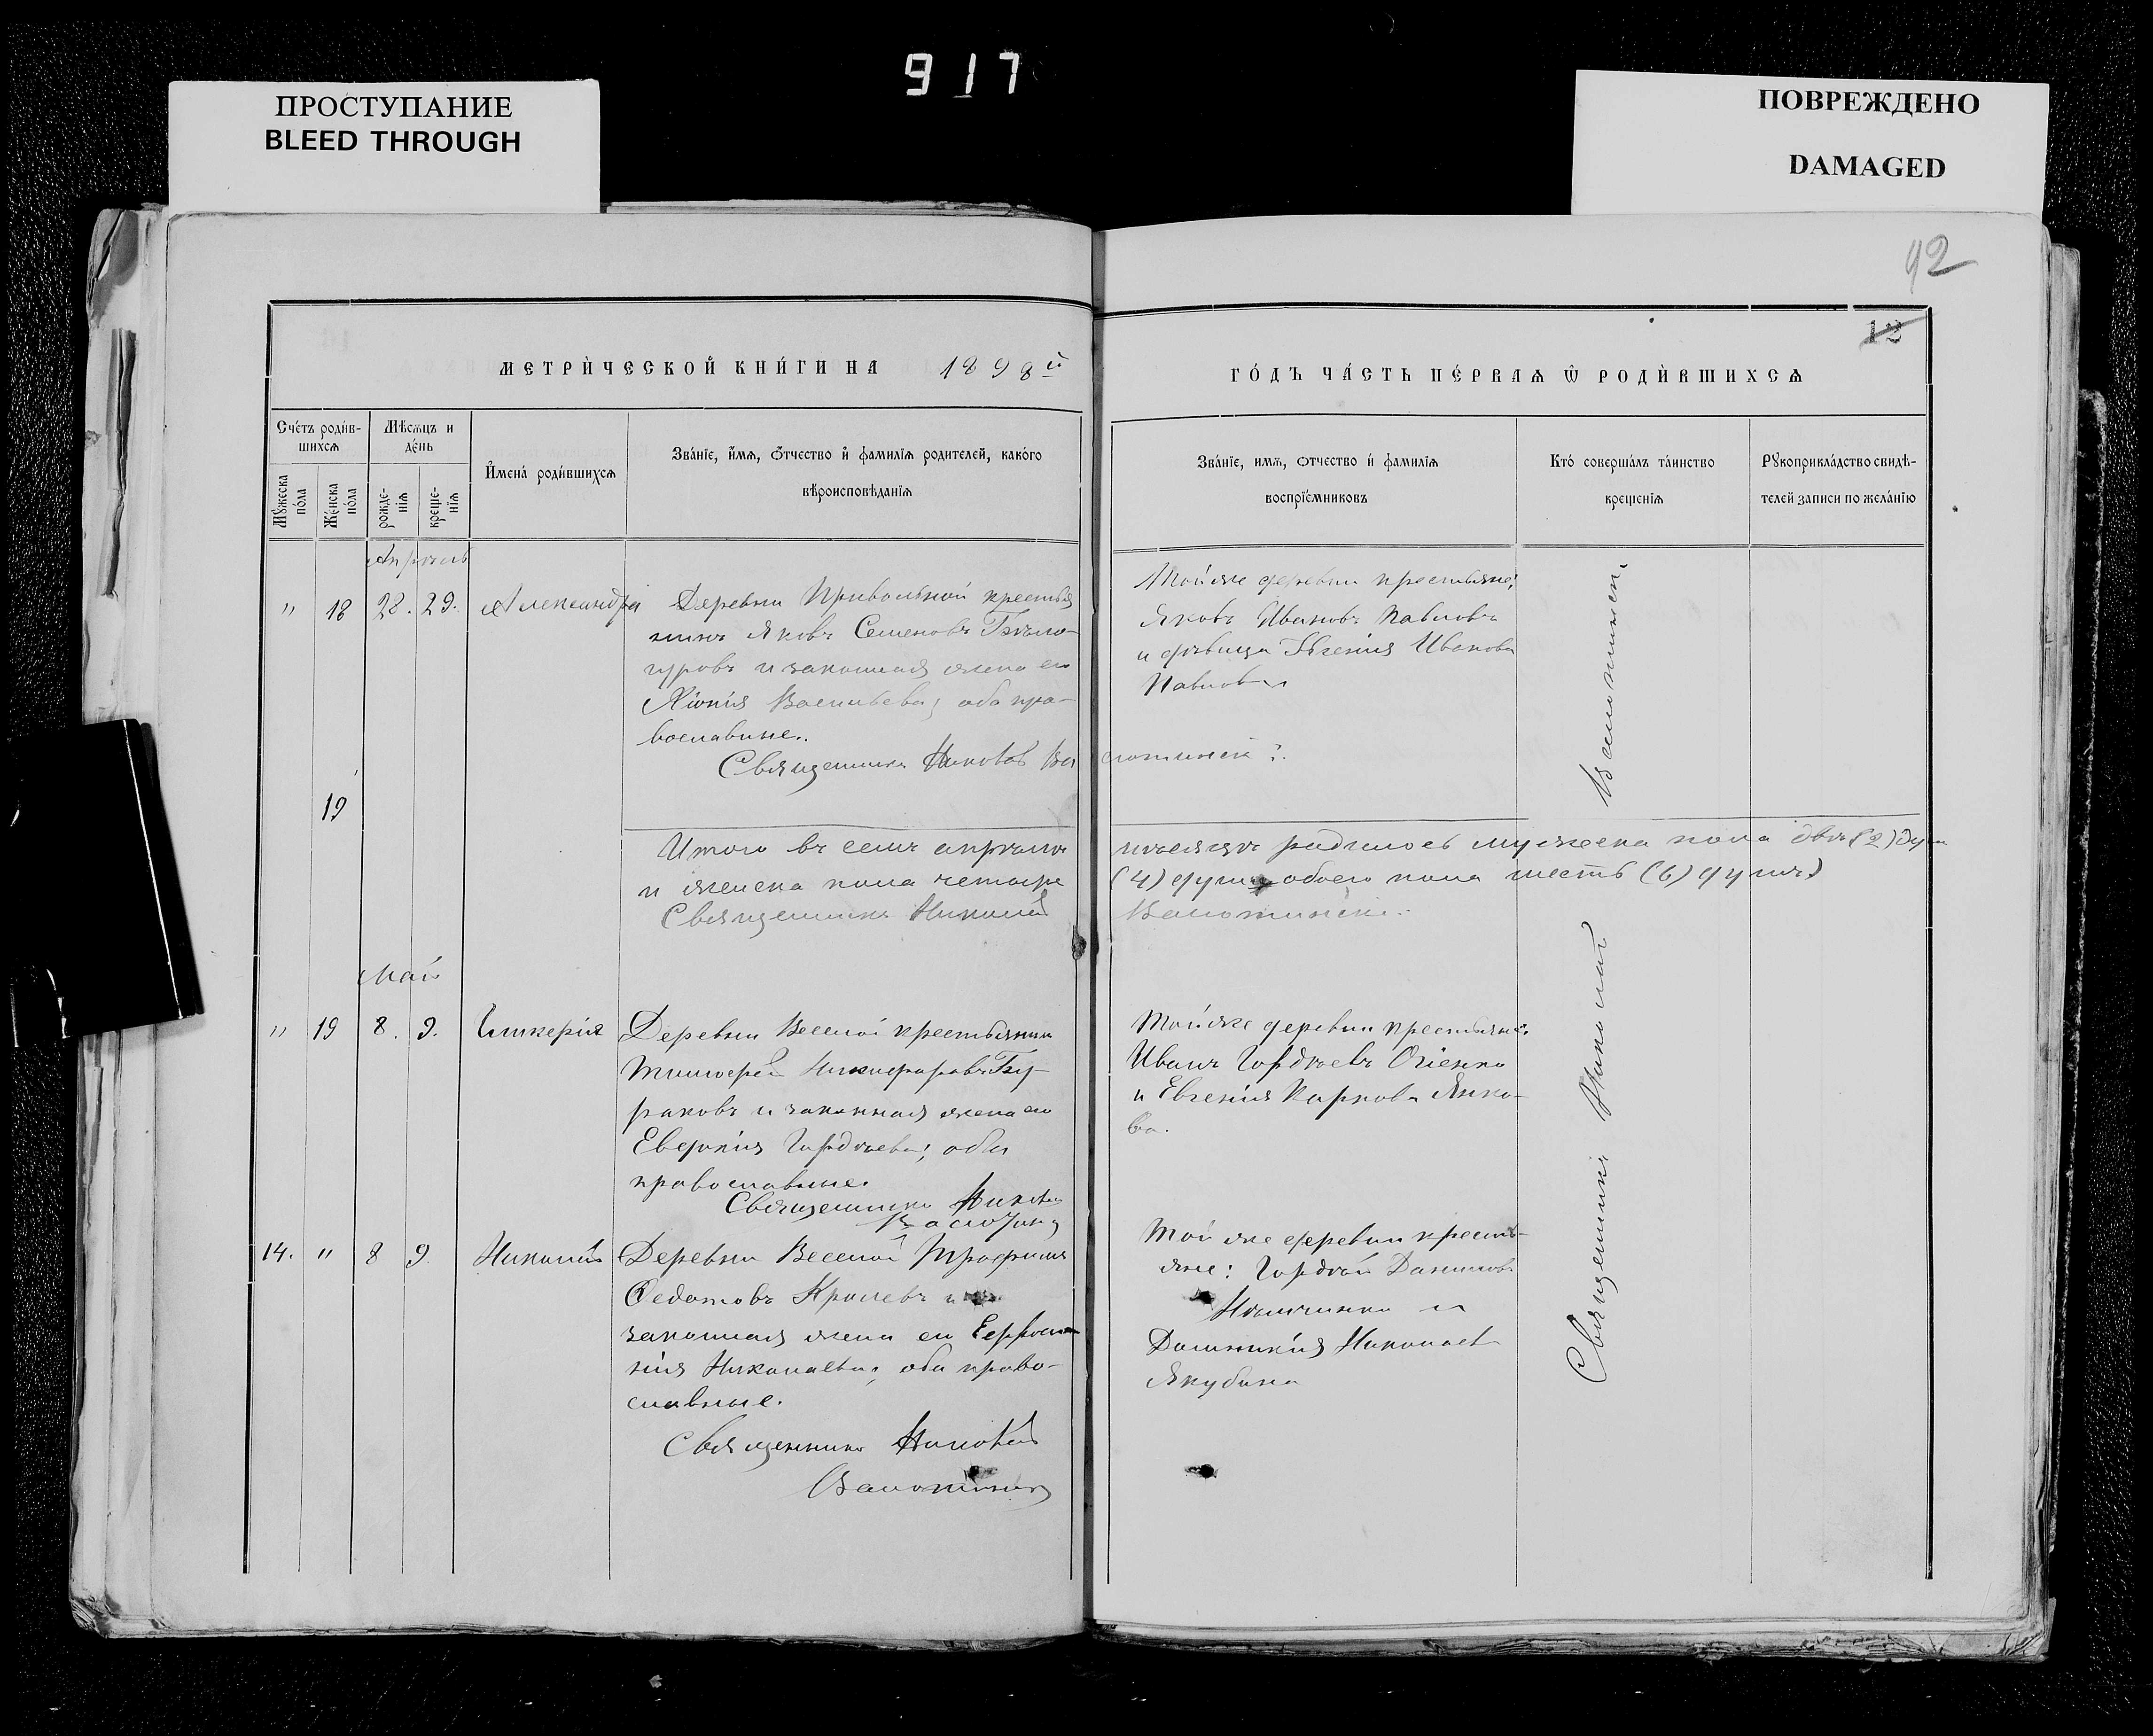 917
ПРОСТУПАНИЕ
BLEED THROUGH
ПОВРЕЖДЕНО
DAMAGED
92
13
МЕТРИ́ЧЕСКОЙ КНИ́ГИ НА 1898й
ГО́ДЪ ЧА́СТЬ ПЕ́РВАѦ Ѿ РОДИ́ВШИХСѦ
Сче́тъ роди́в-
шихсѧ
Мꙋжеска по́ла
Же́нска по́ла
Мѣсѧцъ и
де́нь
рожде-
нїѧ
креще-
нїѧ
Имена̀ роди́вшихсѧ
Зва́нїе, и́мѧ, ѻ҆́тчество и҆ фами́лїѧ роди́телей, како́го
вѣроисповѣ́данїѧ
Зва́нїе, имѧ, ѻтчество и҆ фамилїѧ
воспрїе́мниковъ
Кто̀ соверша́лъ та́инство
креще́нїѧ
Рꙋкоприкла́дство свидѣ-
телей записи по жела́нїю
Апрѣль
" 18 28. 29. Александра
Деревни Привольной крестья
нинъ Яковъ Семеновъ Бѣло-
гуровъ и законная жена его
Хіонія Васильева; оба пра-
вославные.
Священникъ Николай
Тойже деревни крестьяне:
Яковъ Ивановъ Павловъ
и дѣвица Евгенія Иванова
Павлова
19
Итого въ семъ апрѣлѣ мѣсяцѣ родилось мужеска пола двѣ (2) души
и женска пола четыре (4) души, обоего пола шесть (6) душъ
Священникъ Николай
Май
" 19 8. 9. Гликерія
Деревни Веселой крестьянинъ
Тимофей Никифоровъ Бу-
раковъ и законная жена его
Евдокія Гордѣева; оба
православные.
Священникъ Николай
Тойже деревни крестьяне:
Иванъ Гордѣевъ Огіенко
и Евгенія Карпова Янко-
ва.
14. " 8 9 Николай
Деревни Веселой Трофимъ
Федотовъ Кралевъ и
законная жена его Евфроси-
нія Николаева; оба право-
славные.
Священникъ Николай
Той же деревни кресть-
яне: Гордѣй Даниловъ
и
Домникія Николаев
Якубина
Священникъ Николай